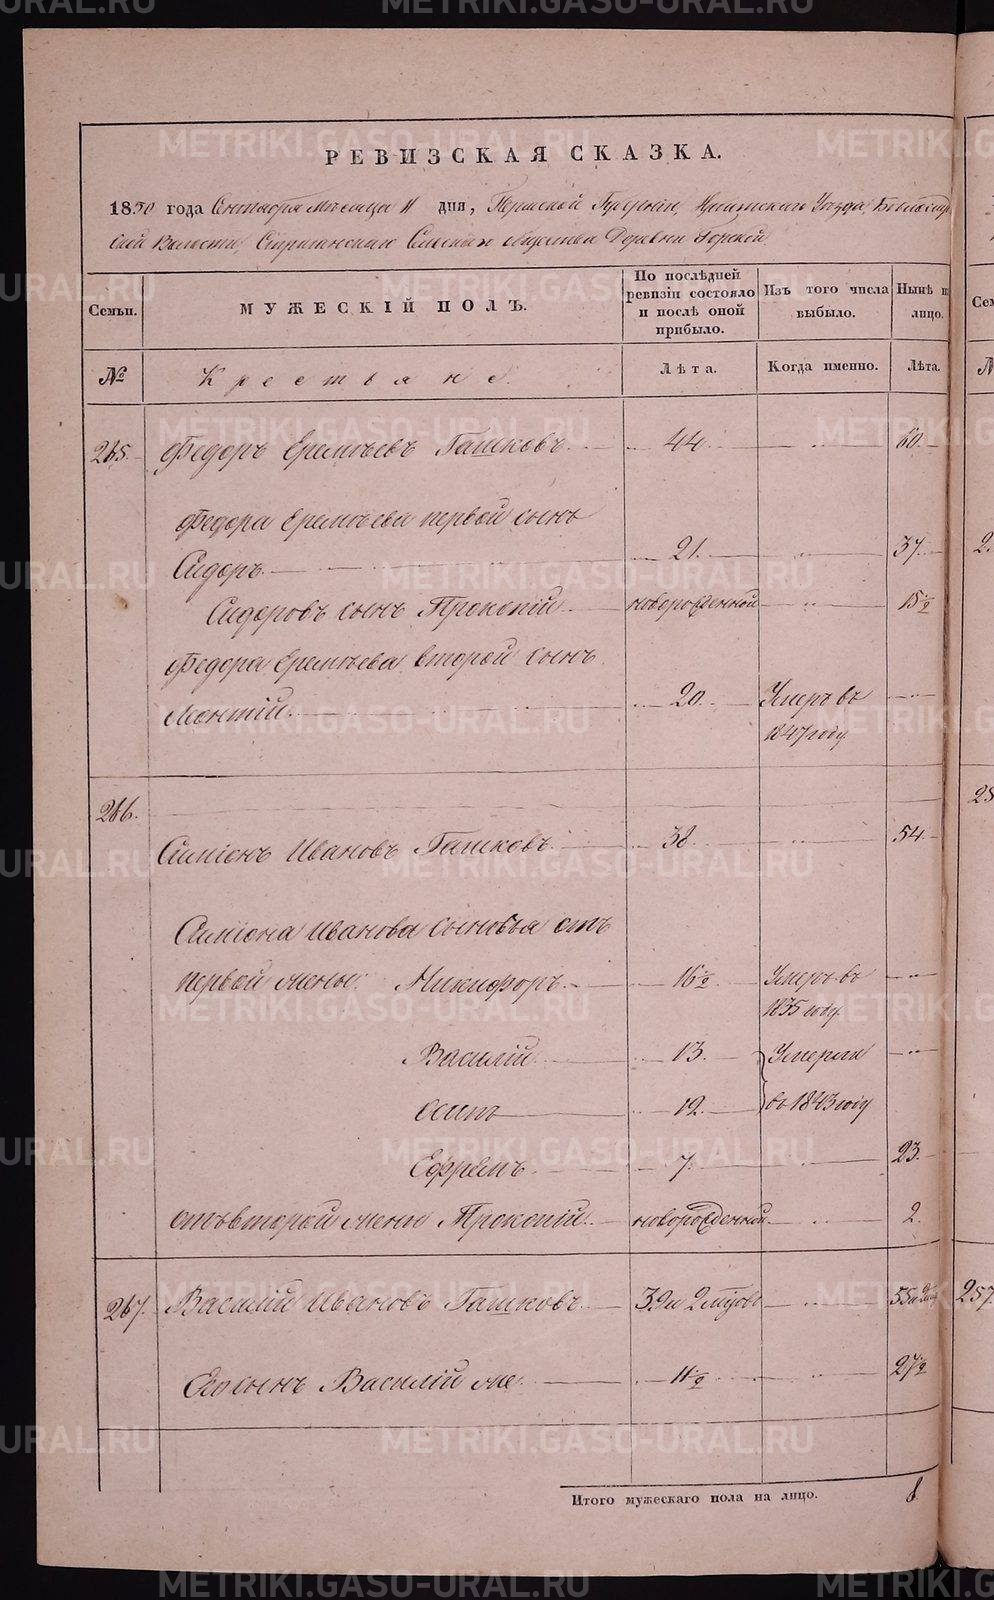 METRIKI.GASO-URAL.RU
РЕВИЗСКАЯ СКАЗКА.
1850 года Сентября Месяца 11 дня, Пермской Губернии, Уезда,
Волости, Сельскаго общества Деревни Горской
Семьи.
МУЖЕСКІЙ ПОЛЪ.
По послѣдней ревизіи состояло и послѣ оной прибыло.
Изъ того числа выбыло.
Нынѣ н лицо.
№
Крестьяне.
Лѣта.
Когда именно.
Лѣта.
265. Федоръ Еремѣевъ Гашковъ 44. 60.
Федора Еремѣева первой сынъ
Сидоръ 21. 37.
Сидоровъ сынъ Прокопій новорожденной 15½
Федора Еремѣева второй сынъ
Леонтій 20. Умеръ въ
1847 году
266.
Симіонъ Ивановъ Гашковъ 38 54
Симіона Иванова сыновья отъ
первой жены: Никифоръ 16½ Умеръ въ
1835 году.
Василій 13. Умерли
Осипъ 12. въ 1843 году
Ефремъ 7. 23.
отъ второй жены Прокопій новорожденной 2.
267. Василій Ивановъ Гашковъ 39 и 2 55 и
Его сынъ Василій же 11½ 27½
Итого мужескаго пола на лицо. 8
257